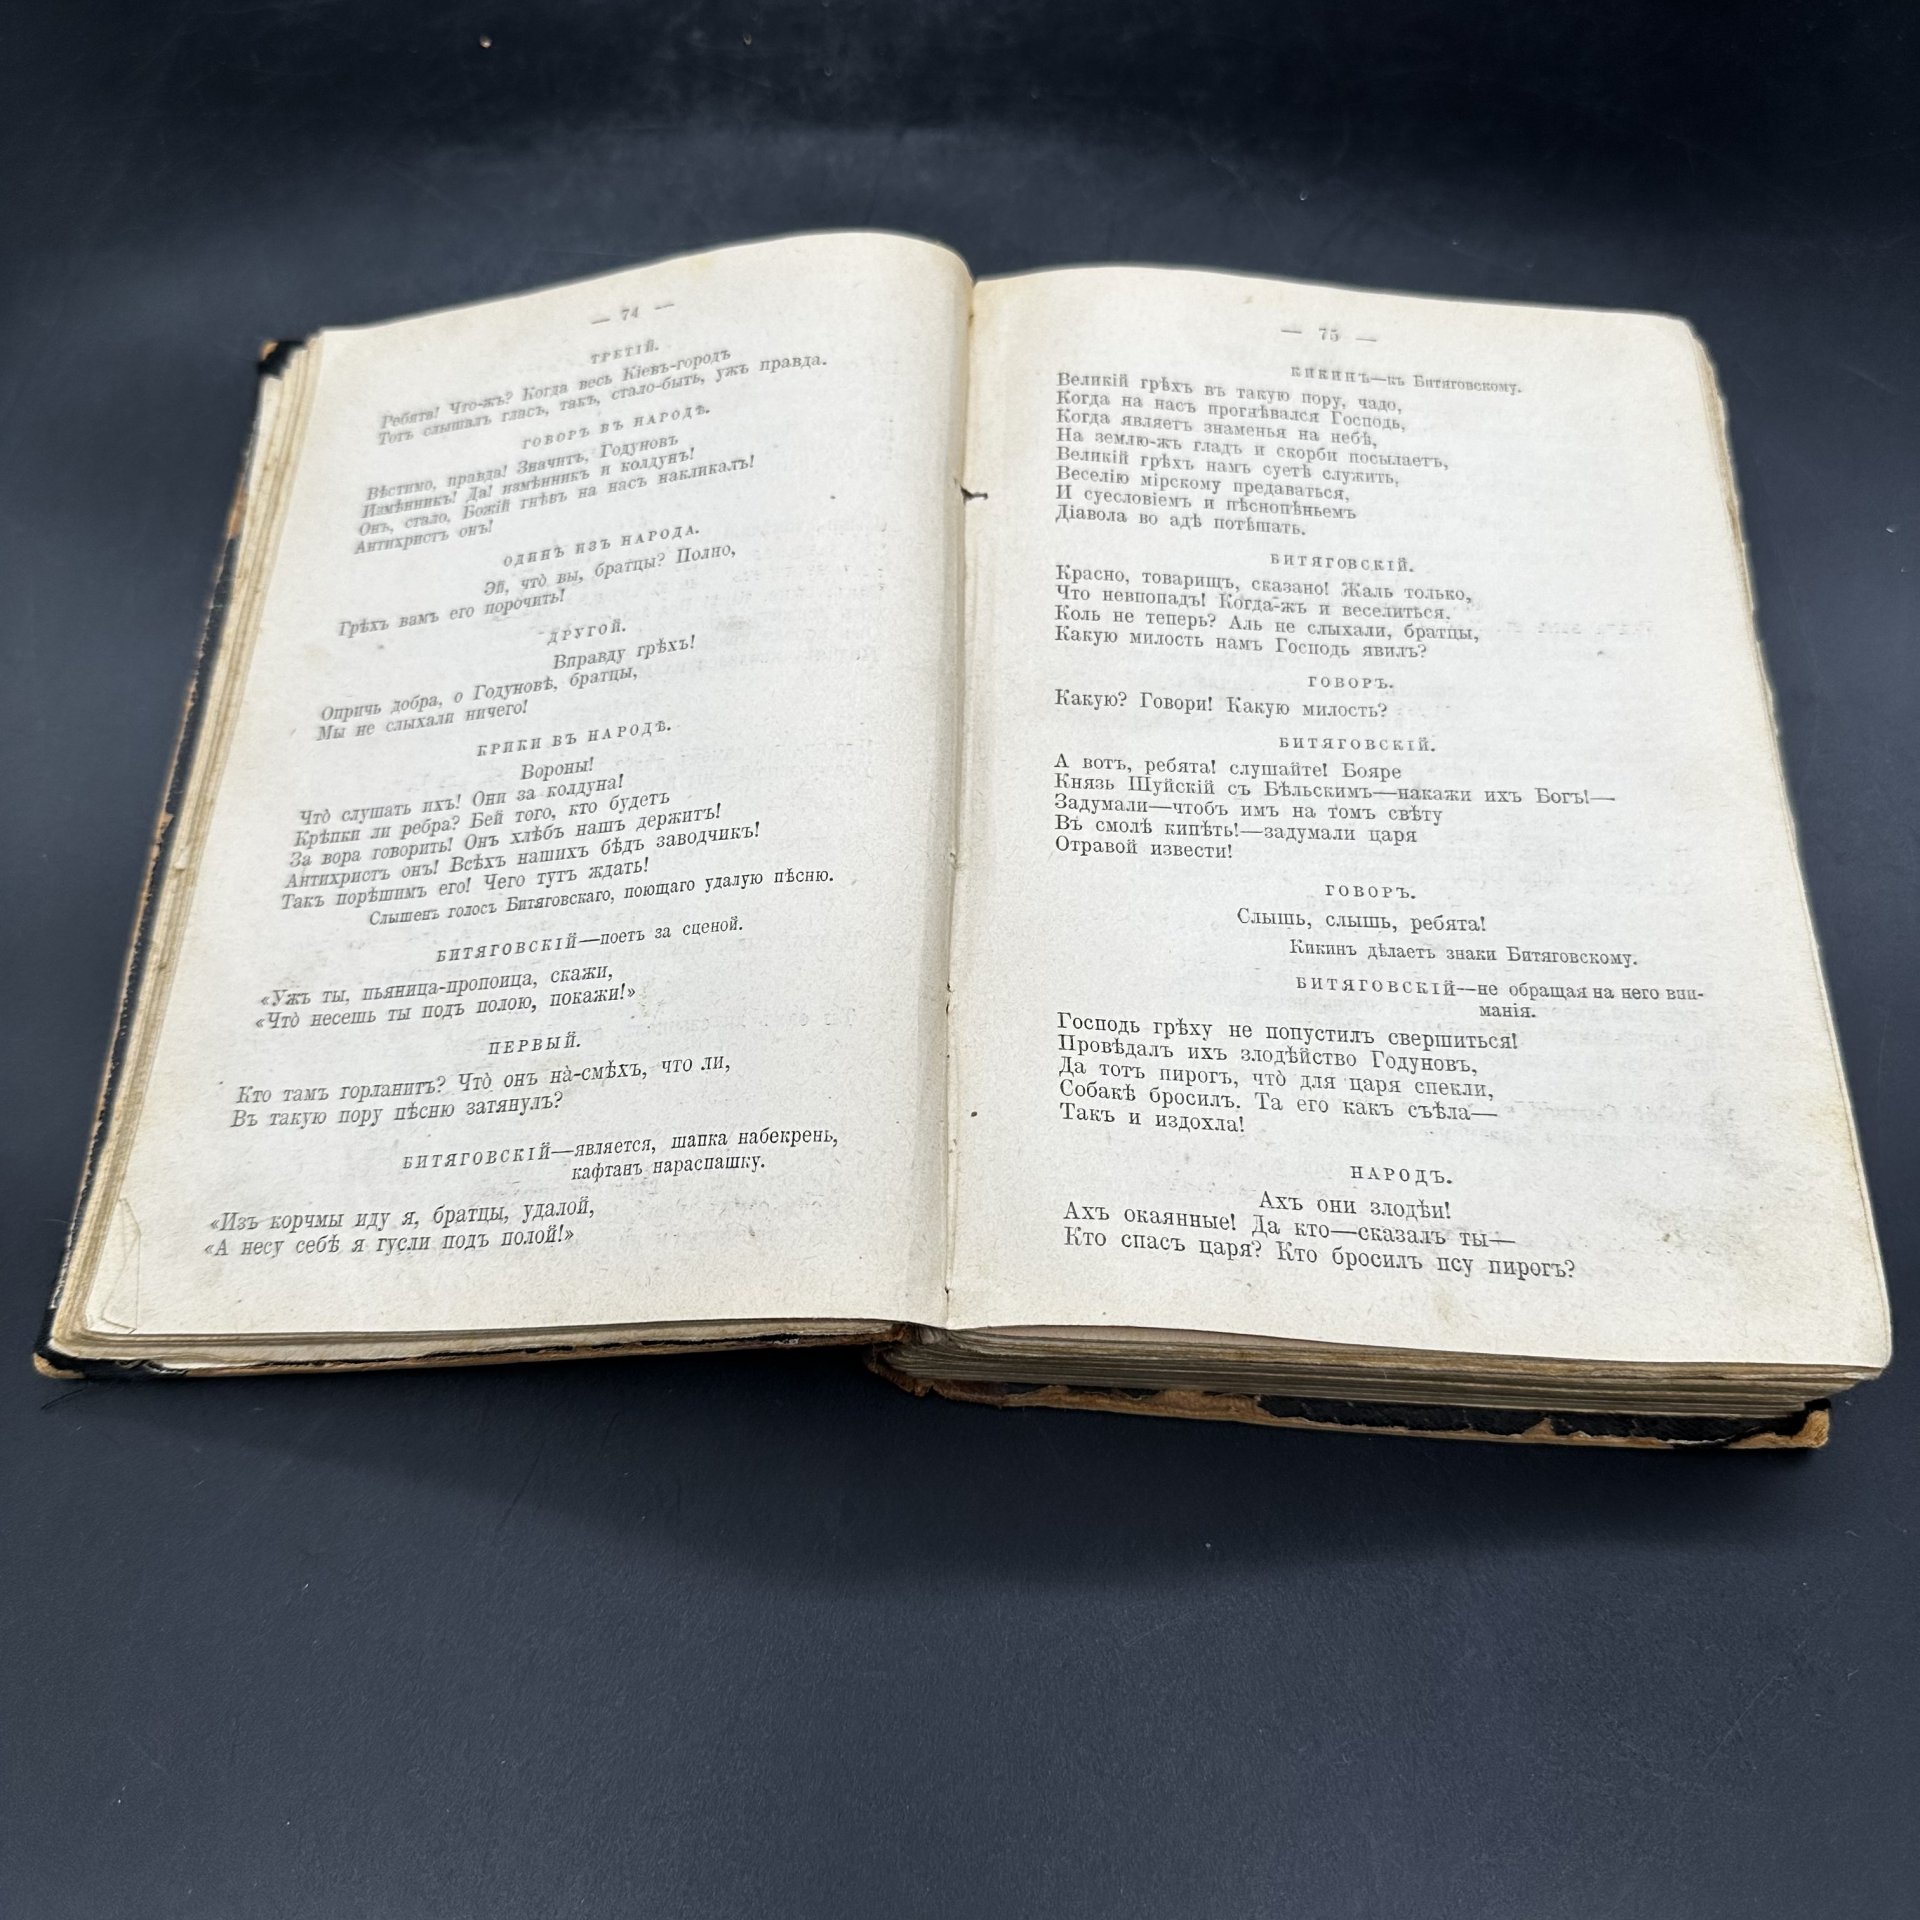 — 74 —
ТРЕТІЙ.
Ребята! Что-жъ? Когда весь Кіевъ-городъ
Тотъ слышалъ гласъ, такъ, стало-быть, ужъ правда.
ГОВОРЪ ВЪ НАРОДѢ.
Вѣстимо, правда! Значитъ, Годуновъ
Измѣнникъ! Да! измѣнникъ и колдунъ!
Онъ, стало, Божій гнѣвъ на насъ накликалъ!
Антихристъ онъ!
ОДИНЪ ИЗЪ НАРОДА.
Эй, что̀ вы, братцы? Полно,
Грѣхъ вамъ его порочить!
ДРУГОЙ.
Вправду грѣхъ!
Опричь добра, о Годуновѣ, братцы,
Мы не слыхали ничего!
КРИКИ ВЪ НАРОДѢ.
Вороны!
Что̀ слушать ихъ! Они за колдуна!
Крѣпки ли ребра? Бей того, кто будетъ
За вора говорить! Онъ хлѣбъ нашъ держитъ!
Антихристъ онъ! Всѣхъ нашихъ бѣдъ заводчикъ!
Такъ порѣшимъ его! Чего тутъ ждать!
Слышенъ голосъ Битяговскаго, поющаго удалую пѣсню.
БИТЯГОВСКІЙ—поетъ за сценой.
«Ужъ ты, пьяница-пропоица, скажи,
«Что̀ несешь ты подъ полою, покажи!»
ПЕРВЫЙ.
Кто тамъ горланитъ? Что̀ онъ на̀-смѣхъ, что ли,
Въ такую пору пѣсню затянулъ?
БИТЯГОВСКІЙ—является, шапка набекрень,
кафтанъ нараспашку.
«Изъ корчмы иду я, братцы, удалой,
«А несу себѣ я гусли подъ полой!»
— 75 —
КИКИНЪ—къ Битяговскому.
Великій грѣхъ въ такую пору, чадо,
Когда на насъ прогнѣвался Господь,
Когда являетъ знаменья на небѣ,
На землю-жъ гладъ и скорби посылаетъ,
Великій грѣхъ намъ суетѣ служить,
Веселію мірскому предаваться,
И суесловіемъ и пѣснопѣньемъ
Діавола во адѣ потѣшать.
БИТЯГОВСКІЙ.
Красно, товарищъ, сказано! Жаль только,
Что невпопадъ! Когда-жъ и веселиться.
Коль не теперь? Аль не слыхали, братцы,
Какую милость намъ Господь явилъ?
ГОВОРЪ.
Какую? Говори! Какую милость?
БИТЯГОВСКІЙ.
А вотъ, ребята! слушайте! Бояре
Князь Шуйскій съ Бѣльскимъ—накажи ихъ Богъ!—
Задумали—чтобъ имъ на томъ свѣту
Въ смолѣ кипѣть!—задумали царя
Отравой извести!
ГОВОРЪ.
Слышь, слышь, ребята!
Кикинъ дѣлаетъ знаки Битяговскому.
БИТЯГОВСКІЙ—не обращая на него вни-
манія.
Господь грѣху не попустилъ свершиться!
Провѣдалъ ихъ злодѣйство Годуновъ,
Да тотъ пирогъ, что̀ для царя спекли,
Собакѣ бросилъ. Та его какъ съѣла—
Такъ и издохла!
НАРОДЪ.
Ахъ они злодѣи!
Ахъ окаянные! Да кто—сказалъ ты—
Кто спасъ царя? Кто бросилъ псу пирогъ?